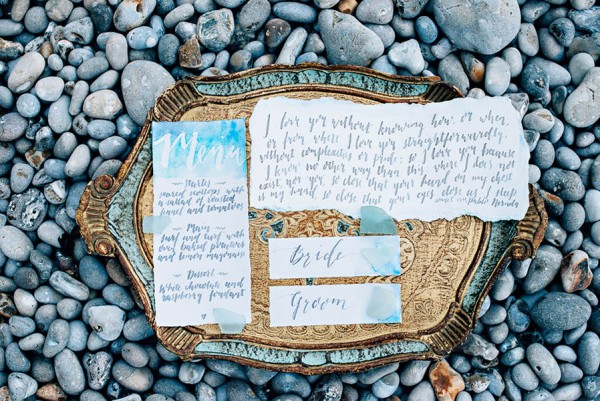 Menu
Starter
pan fried scallops with
a salad of roasted
fennel and tomatoes
Main
Surf and turf with
oven baked potatoes
and lemon mayonnaise
Dessert
White chocolate and
raspberry fondant
I love you without knowing how, or when,
or from where. I love you straightforwardly,
without complexities or pride; so I love you because
I know no other way than this, where I does not
exist, nor you, so close that your hand on my chest
is my hand, so close that your eyes close as I fall asleep
Pablo Neruda
Bride
Groom